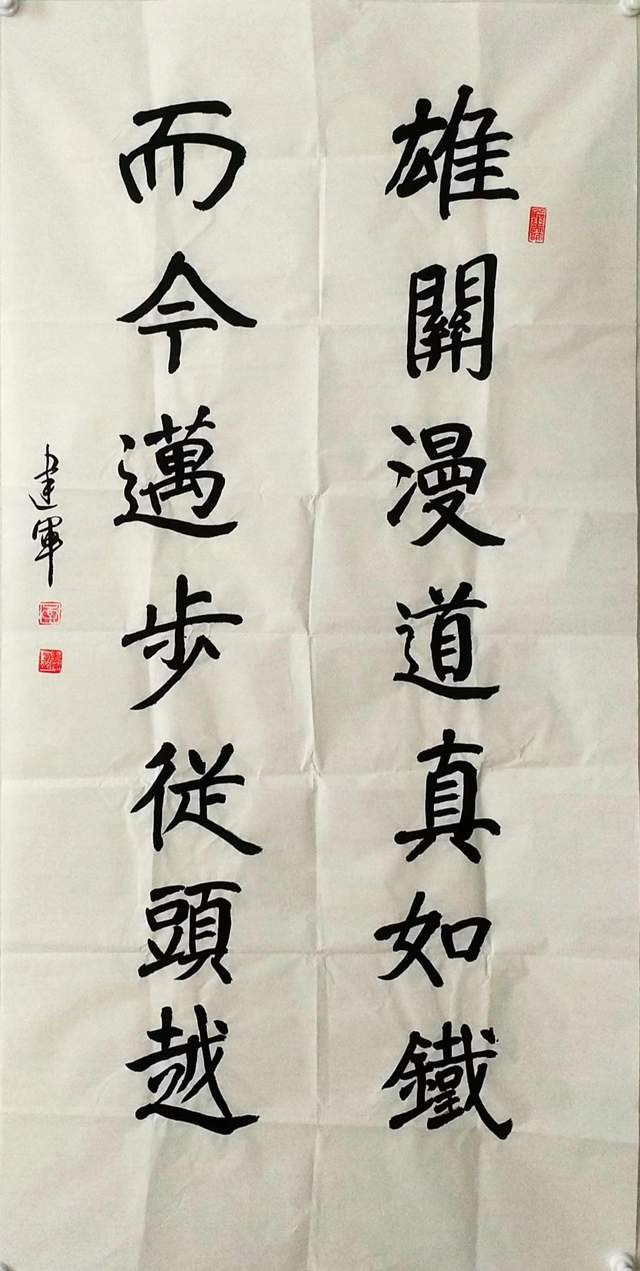 雄關漫道真如鐵
而今邁步從頭越
建軍